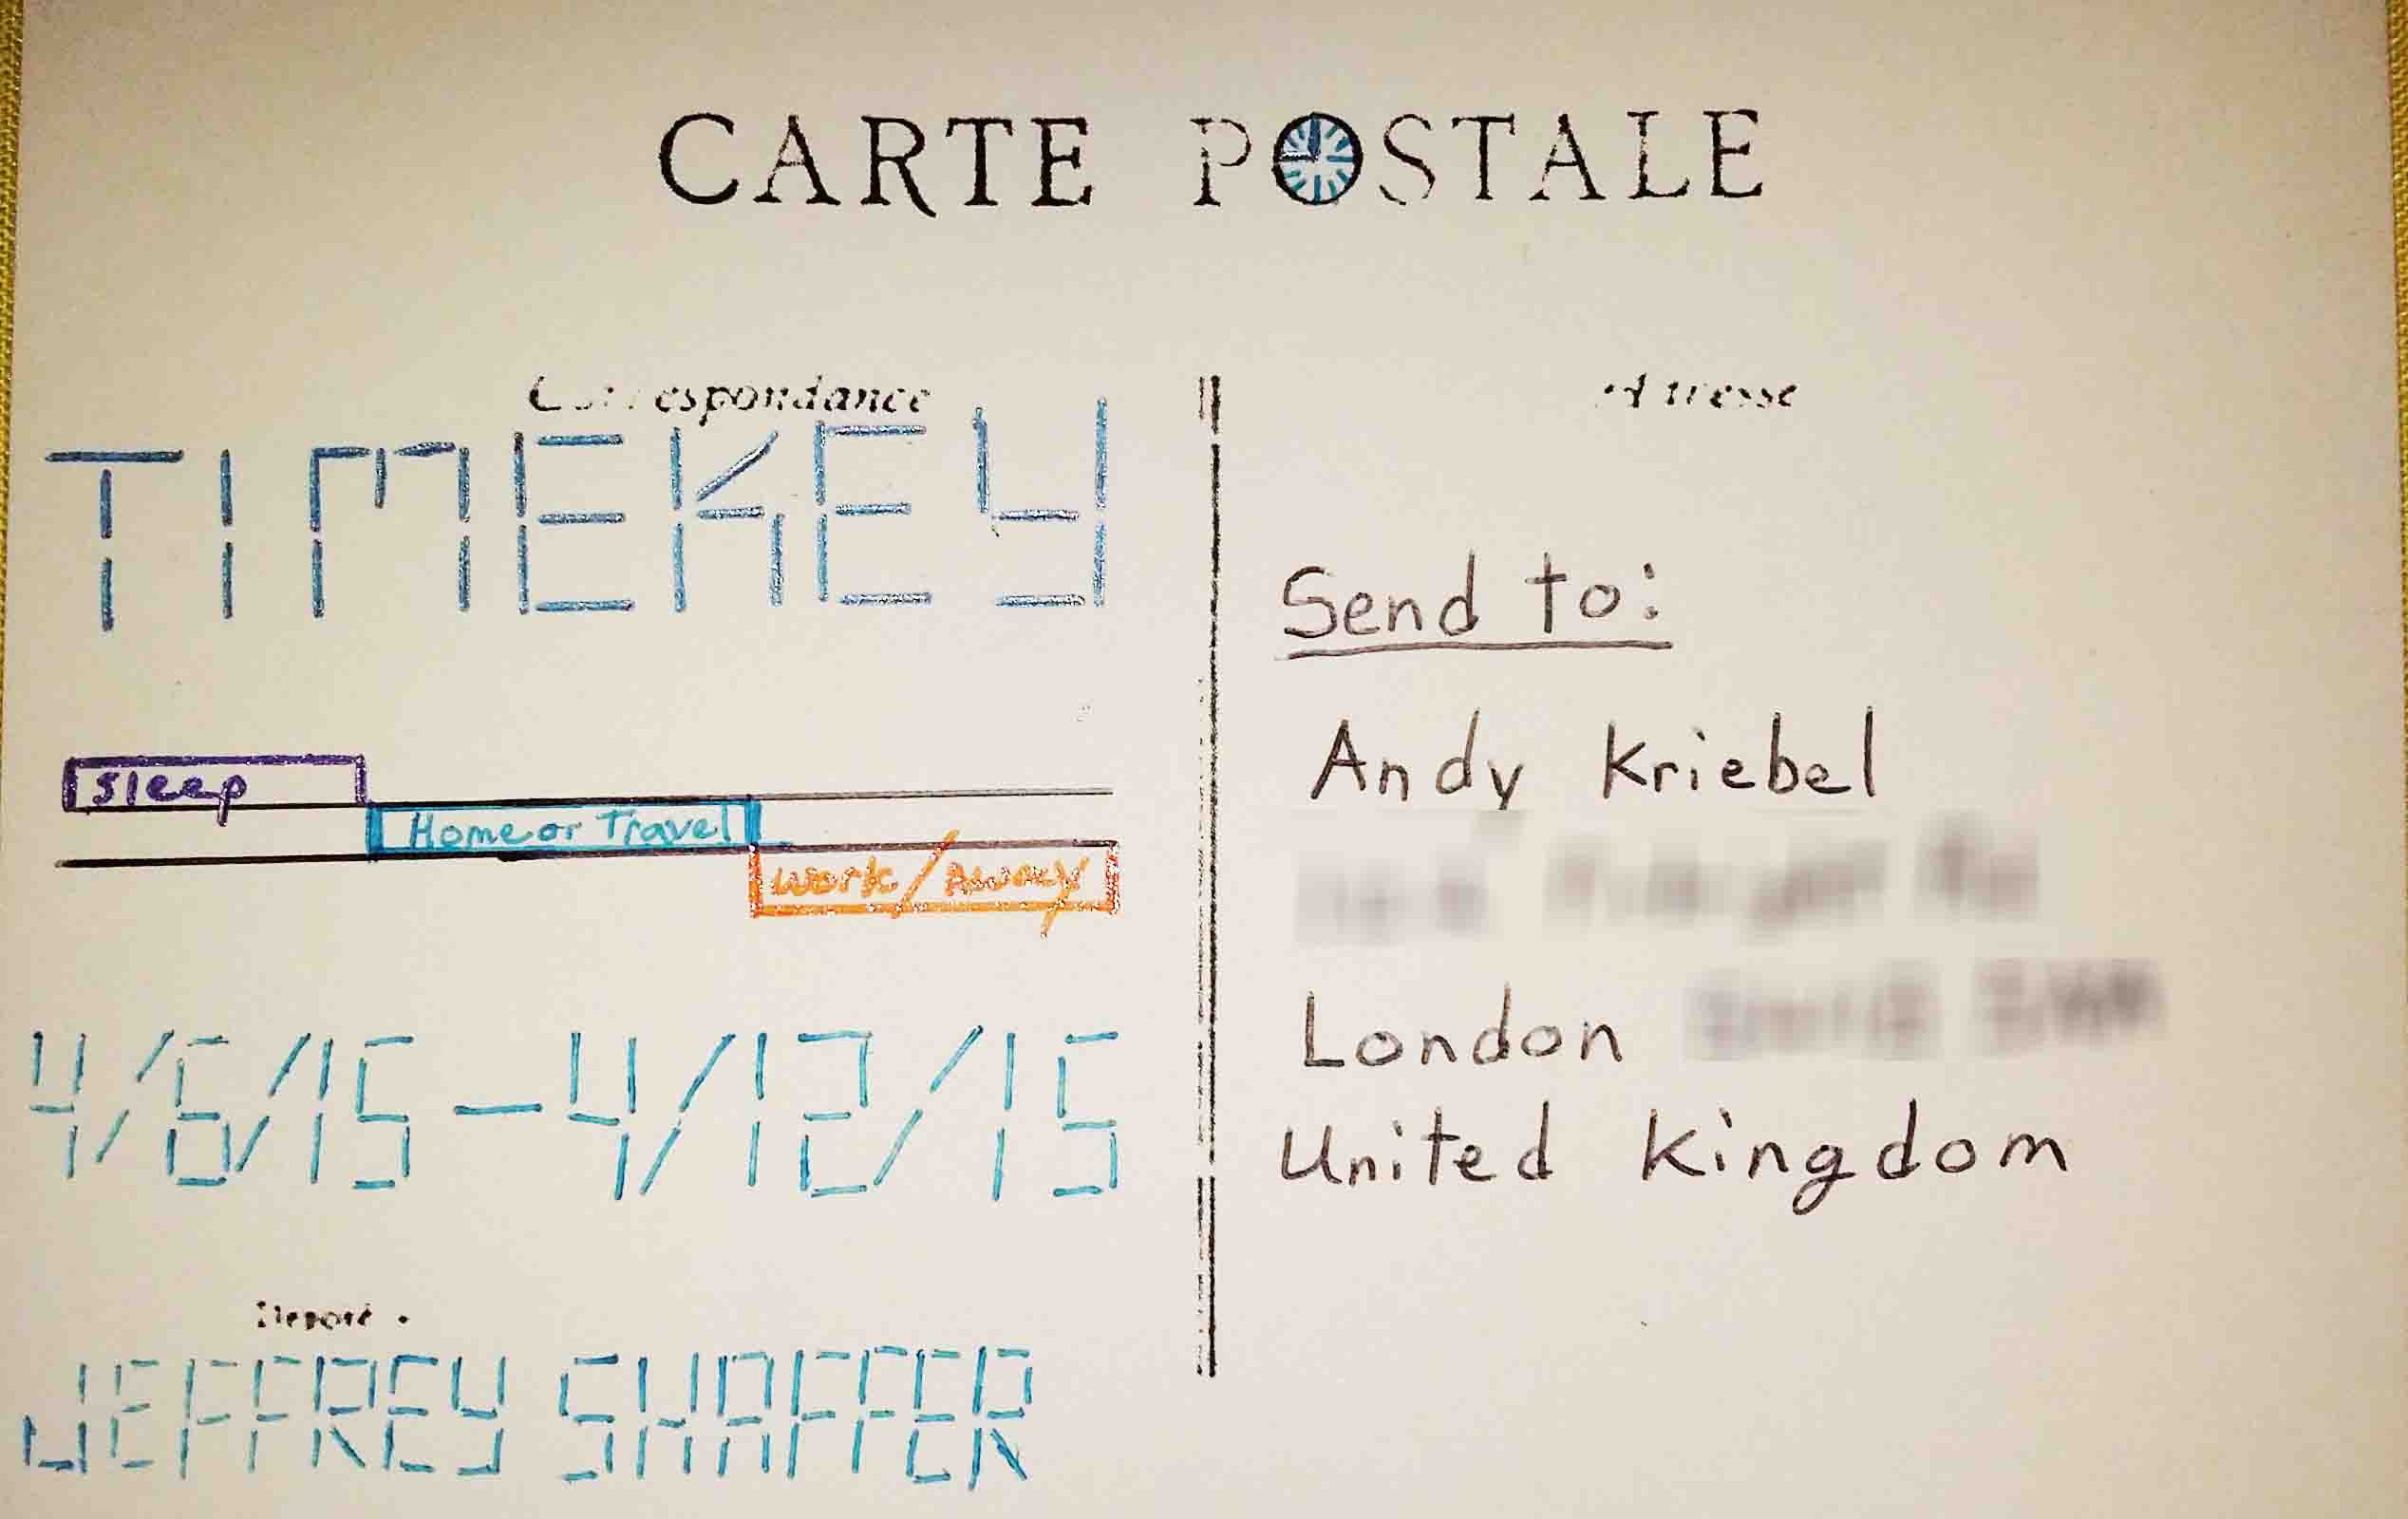 CARTE POSTALE
Correspondance
TIMEKEY
sleep
Home or Travel
Work/Away
4/6/15 - 4/12/15
JEFFREY SHAFFER
Adresse
Send to:
Andy Kriebel
London
United Kingdom